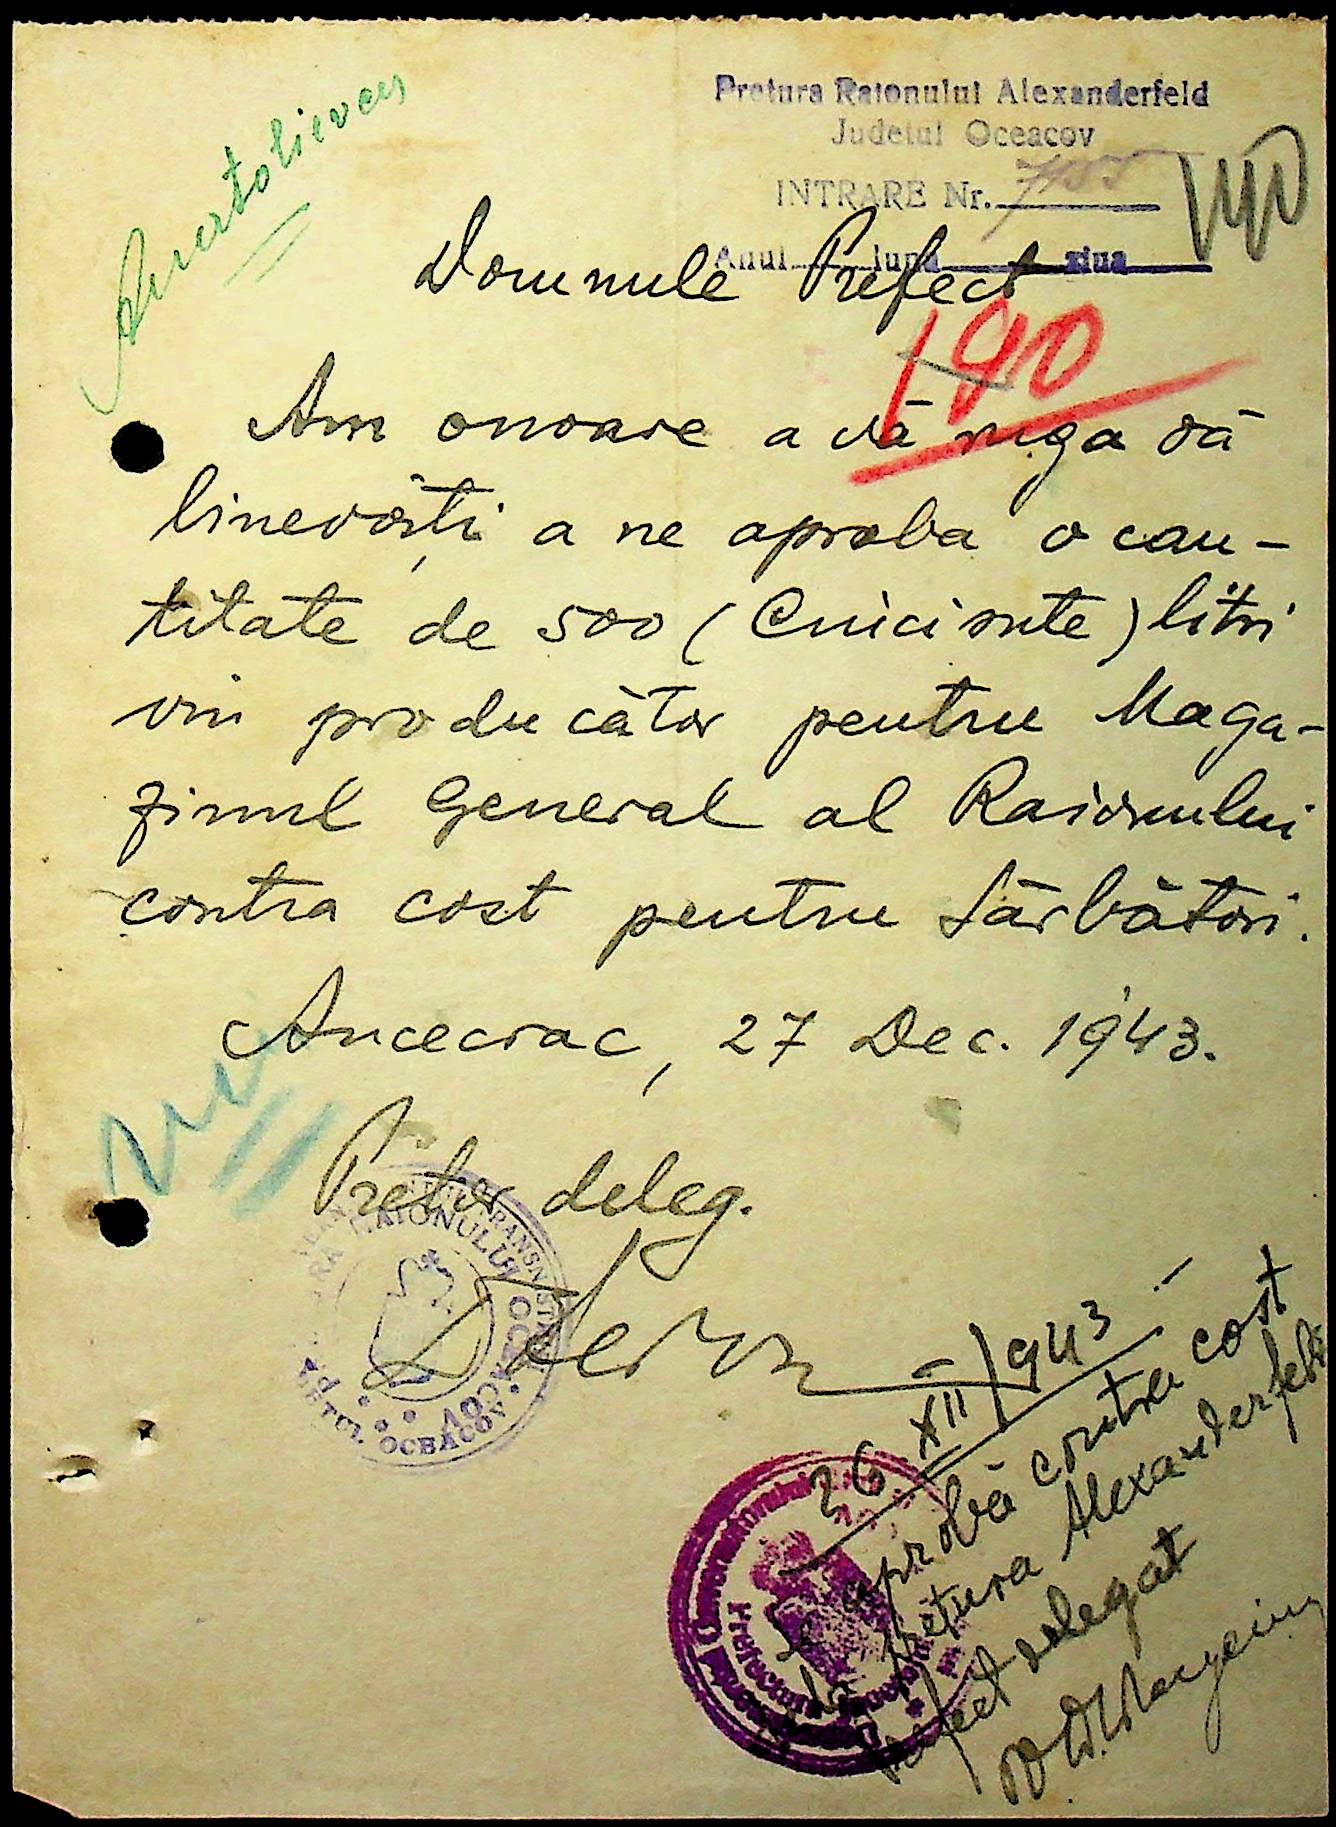 Pretura Raionului Alexanderfeld
Judetul Oceacov
INTRARE Nr. 7155
Anul luna ziua
Domnule Prefect
190
Am onoare a vă ruga să
binevoiți a ne aproba o can-
titate de 500 (Cinci sute) litri
vin producător pentru Maga-
zinul General al Raionului
contra cost pentru Sărbători.
Ancecrac, 27 Dec. 1943.
Pretor deleg.
RAIONULUI OCEACOV
JUDETUL OCEACOV
26 XII/943
Se aprobă contra cost
dela Pretura Alexanderfeld
Prefect delegat
Prefectura Judetului